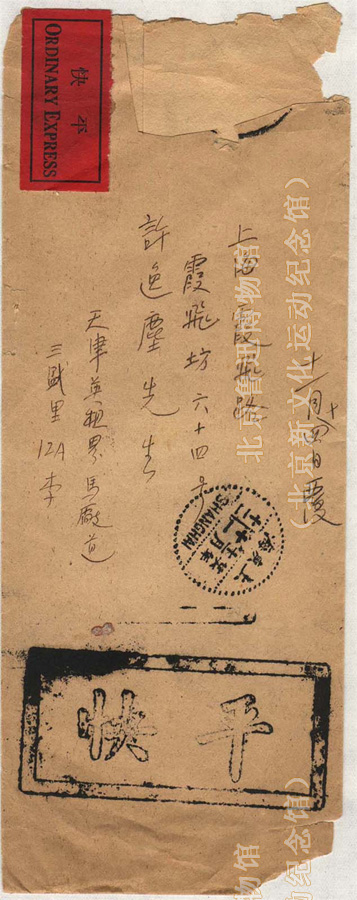 快平
ORDINARY EXPRESS
上海霞飛路
霞飛坊六十四号
許逸塵先生
天津英租界馬廠道
三盛里12A李
十一月十四日覆
上海
SHANGHAI
平快
北京鲁迅博物馆
（北京新文化运动纪念馆）